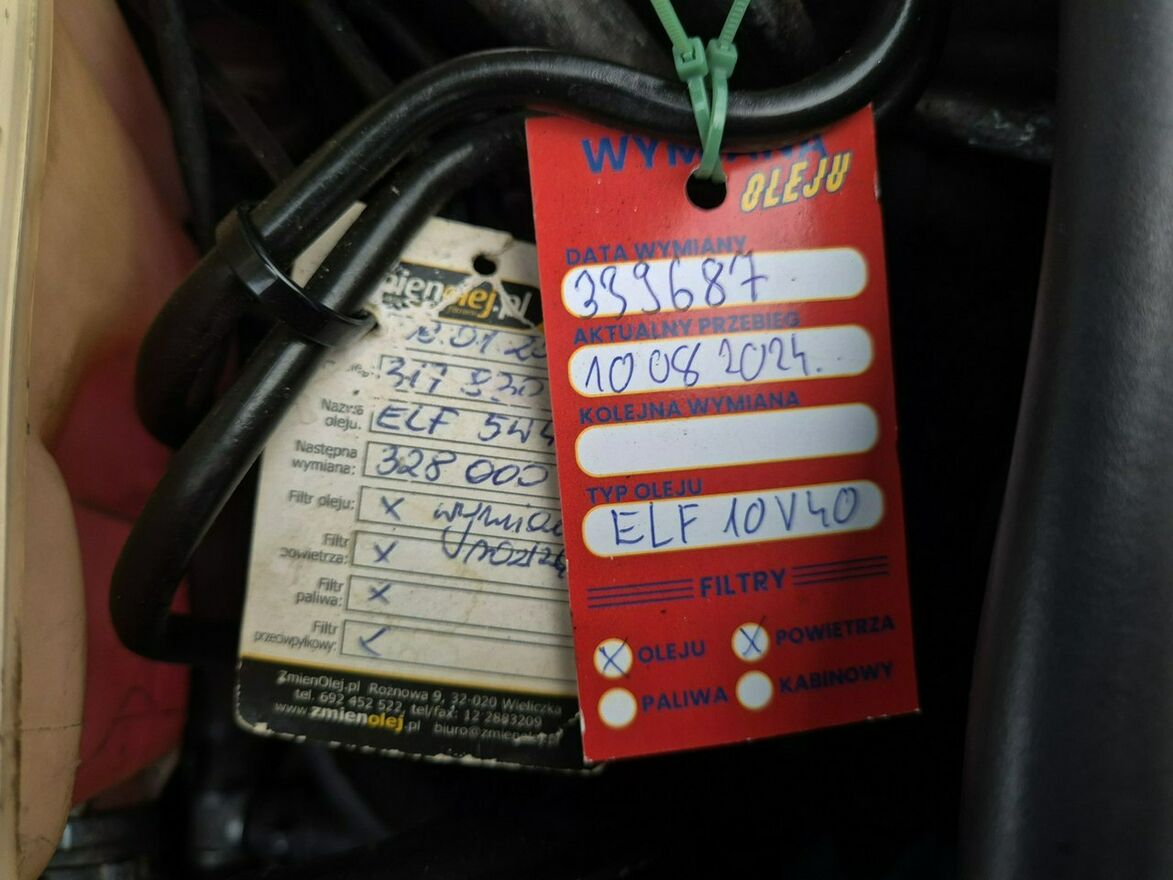 WYMIANA
OLEJU
DATA WYMIANY
339687
AKTUALNY PRZEBIEG
10 08 2024.
KOLEJNA WYMIANA
TYP OLEJU
ELF 10V40
FILTRY
OLEJU
POWIETRZA
PALIWA
KABINOWY
mienolej.pl
317 930
Nazwa oleju:
ELF 5W4
Następna
wymiana:
328 000
Filtr oleju:
X
Filtr
powietrza:
X
Filtr
paliwa:
X
Filtr
przeciwpyłkowy:
ZmienOlej.pl Rożnowa 9, 32-020 Wieliczka
tel. 692 452 522, tel/fax: 12 2883209
www.zmienolej.pl biuro@zmienolej.pl